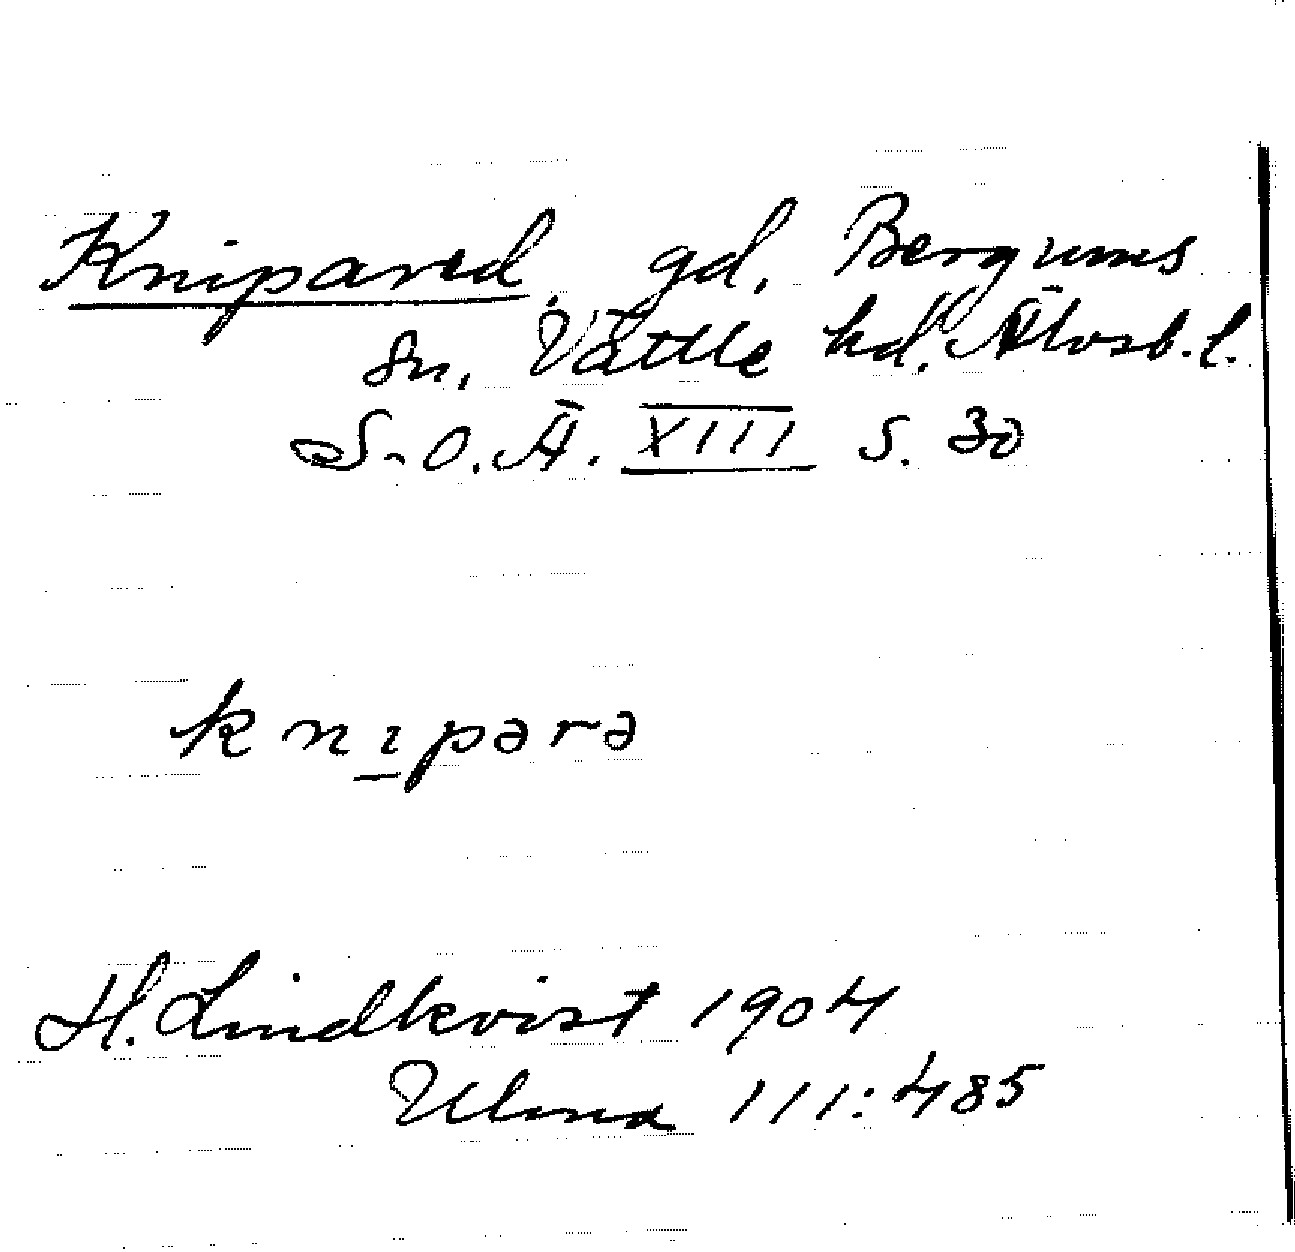 Knipared, gd, Bergums
sn, Vättle hd. Älvsb. l.
S. O. Ä. XIII S. 30
knɪpərə
H. Lindkvist 1904
Ulma 111:485